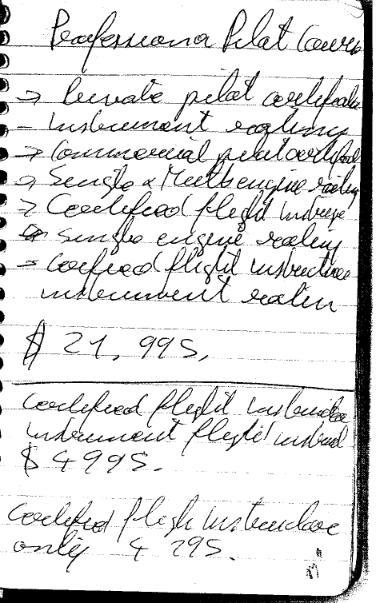 Professional Pilot Course
→ Private pilot certificate
- Instrument rating
→ Commercial pilot certificate
→ Single & Multi engine rating
→ Certified flight instructor
single engine rating
→ Certified flight instructor
instrument rating
$ 21,995,
Certified flight instructor
instrument flight instruct
$ 4995.
Certified fligh instructor
only 4 295.